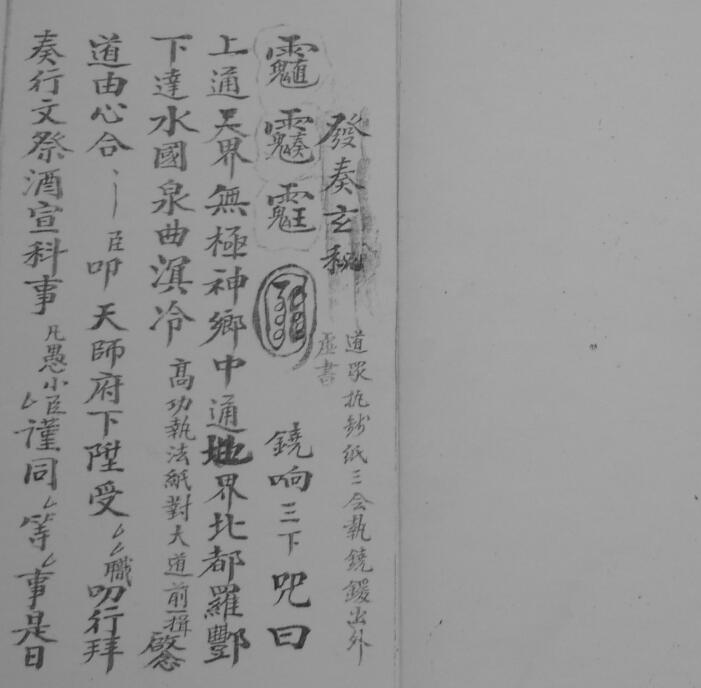 發奏玄秘
道眾抗鈔紙三会執鐃鍰出外
虛書
鐃响三下咒曰
上通界無極神鄉中通地界北都羅酆
下達水國泉曲溟冷 高功執法紙對大道前一揖 啟念
道由心合、丨臣叩天師府下陞受ムム職叨行拜
奏行文祭酒宣科事 凡愚小臣ム謹同ムム等ム事是日